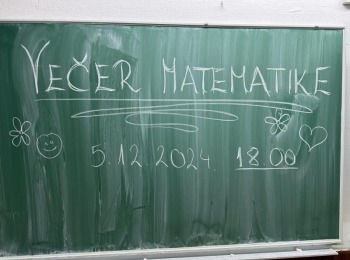 VEČER MATEMATIKE
5.12.2024. 18.00